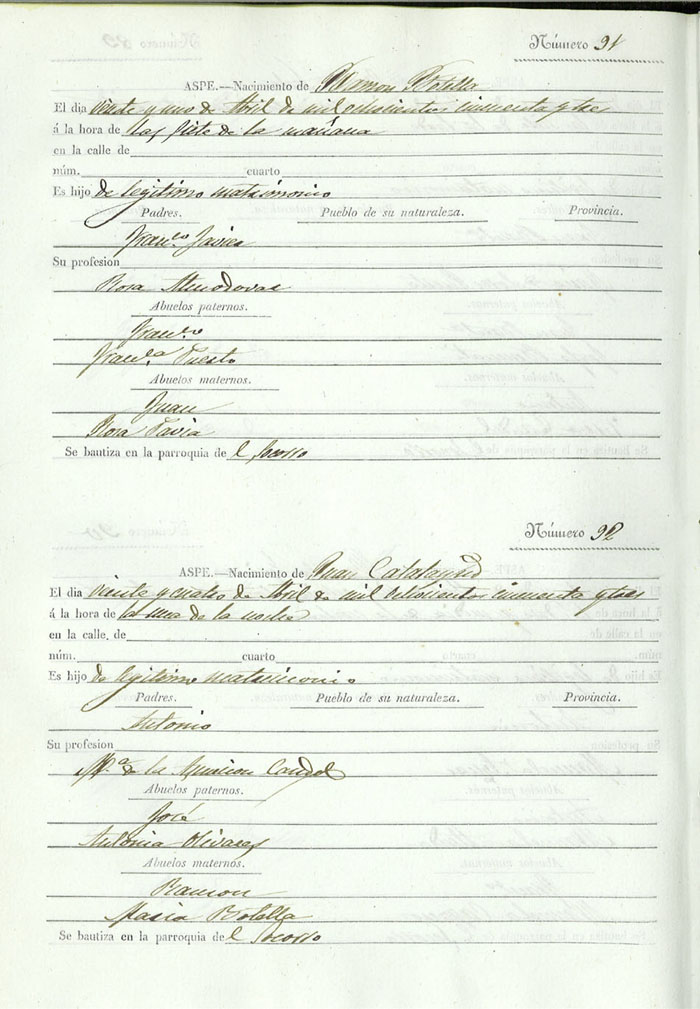 Número 91
ASPE.—Nacimiento de Ramon Botella
El dia veinte y uno de Abril de mil ochocientos cincuenta y tres
á la hora de las siete de la mañana
en la calle de
núm. cuarto
Es hijo de legitimo matrimonio
Padres. Pueblo de su naturaleza. Provincia.
Fran.co Javier
Su profesion
Rosa Almodovar
Abuelos paternos.
Fran.co
Fran.ca Puerto
Abuelos maternos.
Juan
Rosa Pavia
Se bautiza en la parroquia de l Socorro
Número 92
ASPE.—Nacimiento de Juan Calatayud
El dia veinte y cuatro de Abril de mil ochocientos cincuenta y tres
á la hora de la una de la noche
en la calle. de
núm. cuarto
Es hijo de legitimo matrimonio
Padres. Pueblo de su naturaleza. Provincia.
Antonio
Su profesion
M.a de la Asuncion Candel
Abuelos paternos.
José
Antonia Olivares
Abuelos maternos.
Ramon
Maria Botella
Se bautiza en la parroquia de l Socorro